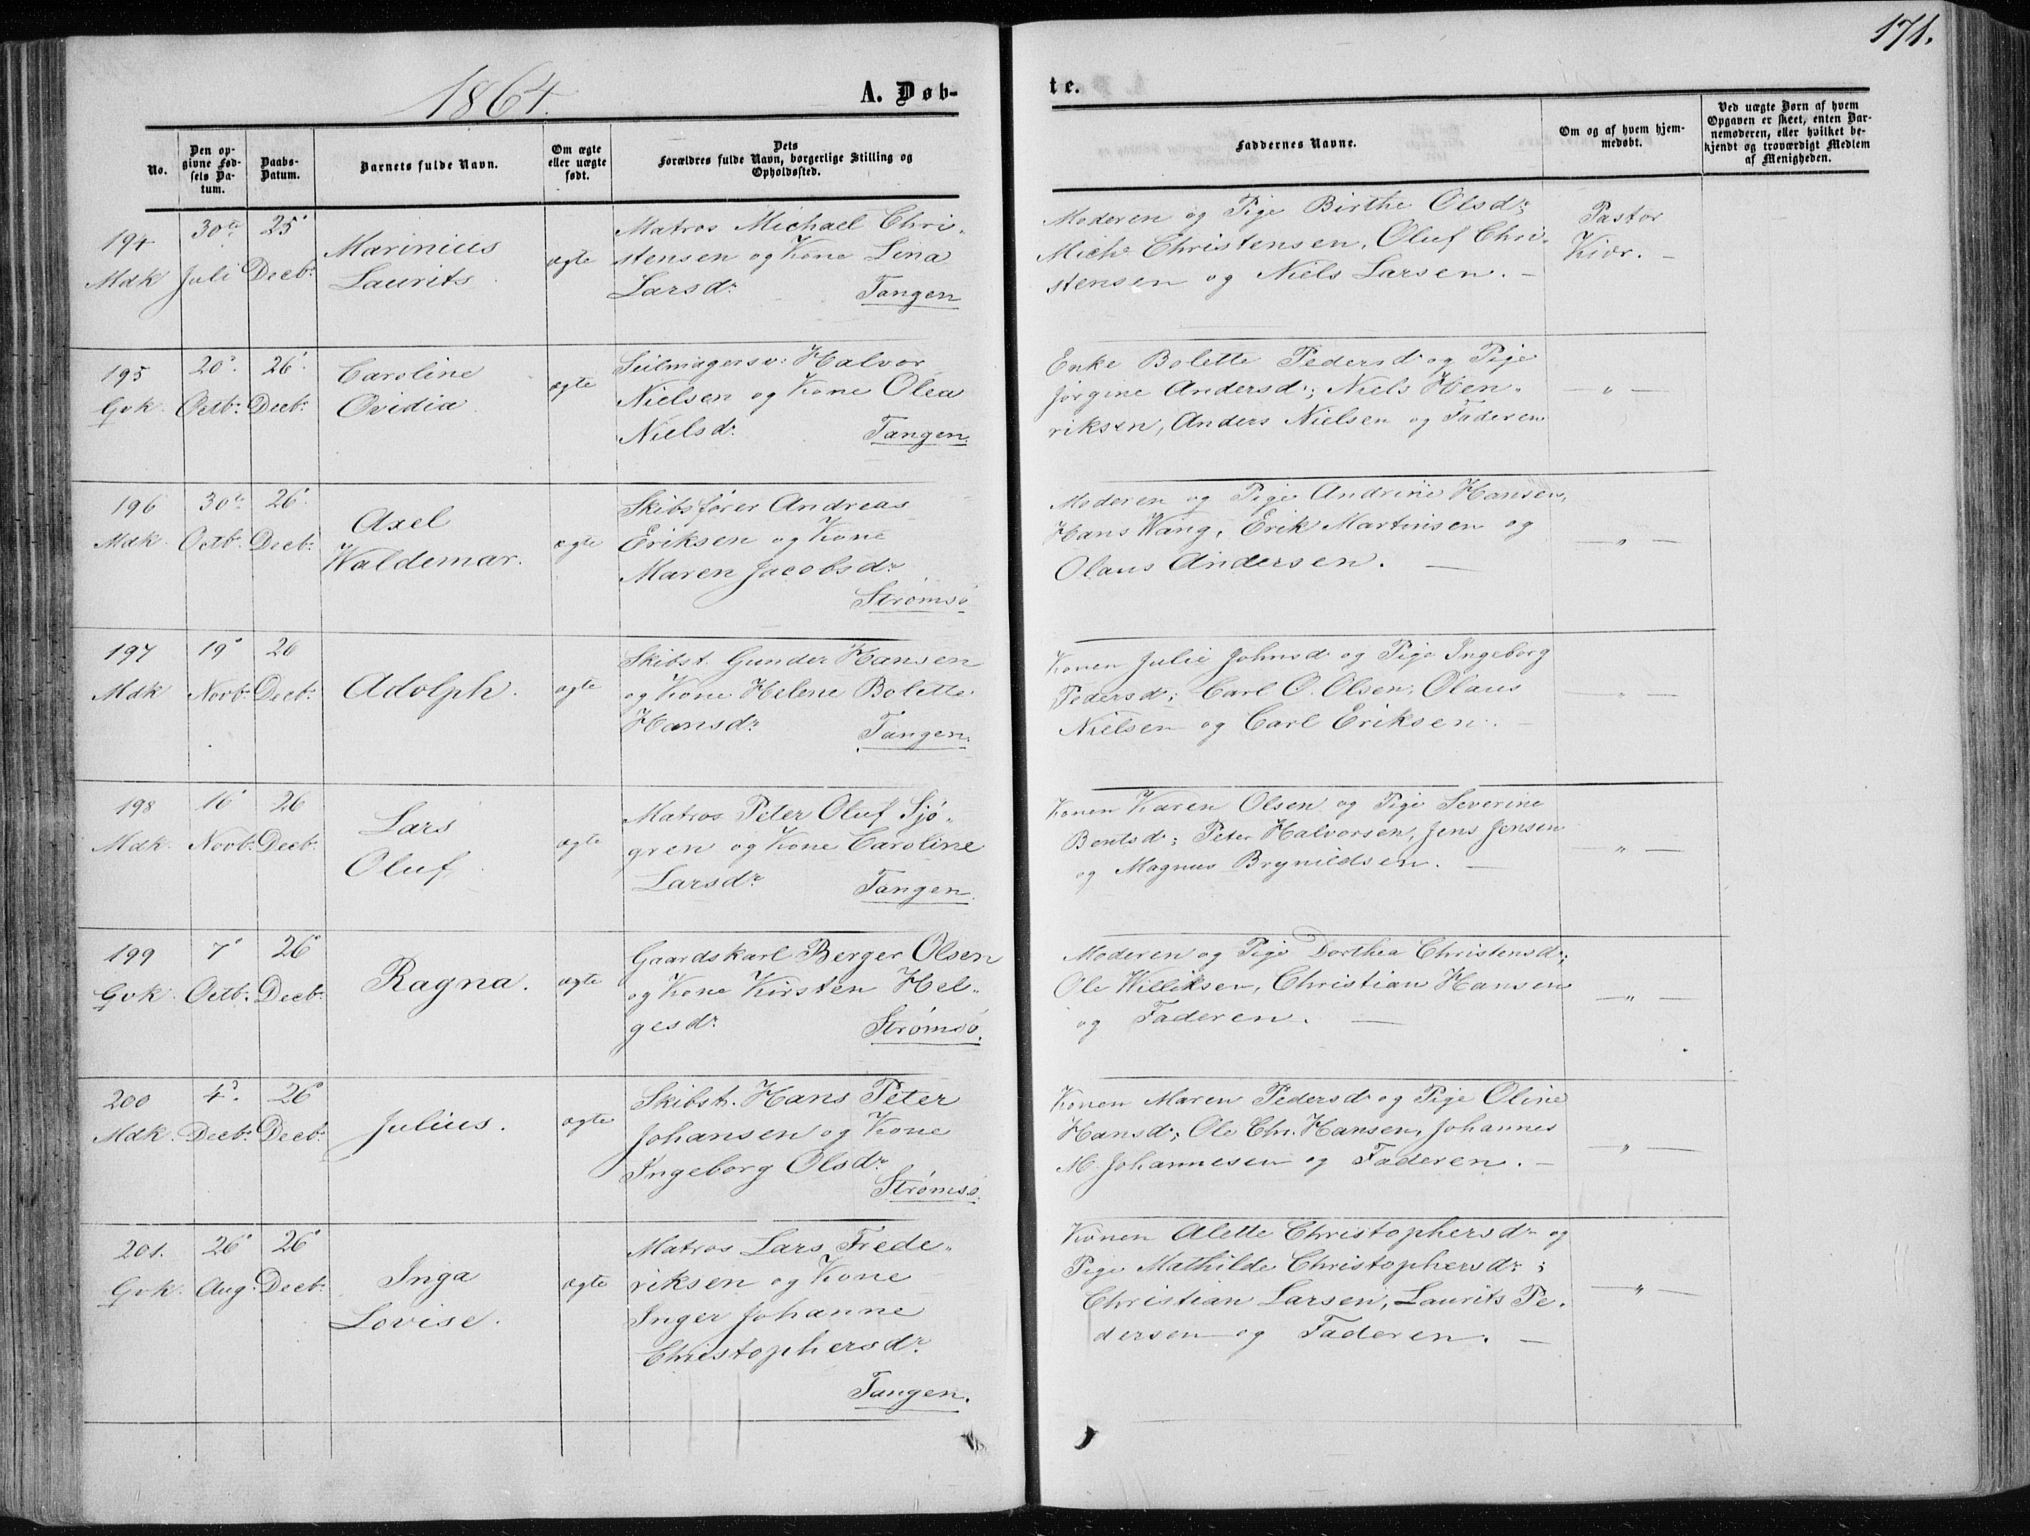 171.
1864.
A. Døb-
te.
No.
Den op-
givne Fød-
sels Da-
tum.
Daabs-
Datum.
Barnets fulde Navn.
Om ægte
eller uægte
født.
Dets
Forældres fulde Navn, borgerlige Stilling og
Opholdssted.
Faddernes Navne.
Om og af hvem hjem-
medøbt.
Ved uægte Børn af hvem
Opgaven er skeet, enten Bar-
nemoderen, eller hvilket be-
kjendt og troværdigt Medlem
af Menigheden.
194
Mdk
30te
Juli
25'
Decbr.
Marinius
Laurits
ægte
Matros Michael Chri-
stensen og Kone Lina
Larsdr.
Tangen
Moderen og Pige Birthe Olsdr;
Mich Christensen, Oluf Chri-
stensen og Niels Larsen. –
Pastor
Kiær. –
195
Gvk.
20'
Octbr.
26'
Decbr.
Caroline
Ovidia
ægte
Seilmagersv: Halvor
Nielsen og Kone Olea
Nielsdr.
Tangen.
Enke Bolette Pedersd og Pige
Jørgine Andersd; Niels Hen-
riksen, Anders Nielsen og Faderen
– " –
196
Mdk.
30te
Octbr.
26'
Decbr.
Axel
Waldemar.
ægte
Skibsfører Andreas
Eriksen og Kone
Maren Jacobsdr
Strømsø
Moderen og Pige Andrine Hansen,
Hans Wang, Erik Martinsen og
Olaus Andersen. –
– " –
197
Mdk
19'
Novbr.
26
Decbr.
Adolph.
ægte
Skibst. Gunder Hansen
og Kone Helene Bolette
Hansdr
Tangen.
Konen Julie Johnsd og Pige Ingeborg
Pedersd; Carl O. Olsen, Olaus
Nielsen og Carl Eriksen. –
– " –
198
Mdk.
16'
Novbr.
26
Decbr.
Lars
Oluf
ægte
Matros Peter Oluf Sjø-
gren og Kone Caroline
Larsdr
Tangen.
Konen Karen Olsen og Pige Severine
Bentsd; Peter Halvorsen, Jens Jensen
og Magnus Brynildsen. –
– " –
199
Gvk.
7'
Octbr.
26'
Decbr.
Ragna.
ægte
Gaardskarl Berger Olsen
og Kone Kirsten Hel-
gesdr
Strømsø.
Moderen og Pige Dorthea Christensd;
Ole Williksen, Christian Hansen
og Faderen. –
– " –
200
Mdk.
4'
Decbr.
26'
Decbr.
Julius.
ægte
Skibst. Hans Peter
Johansen og Kone
Ingeborg Olsdr
Strømsø.
Konen Maren Pedersd og Pige Oline
Hansd; Ole Chr. Hansen, Johannes
M. Johannesen og Faderen. –
– " –
201.
Gvk.
26'
Aug.
26'
Decbr.
Inga
Lovise.
ægte
Matros Lars Frede-
riksen og Kone
Inger Johanne
Christophersdr
Tangen.
Konen Alette Christophersdr og
Pige Mathilde Christophersdr;
Christian Larsen, Laurits Pe-
dersen og Faderen. –
– " –